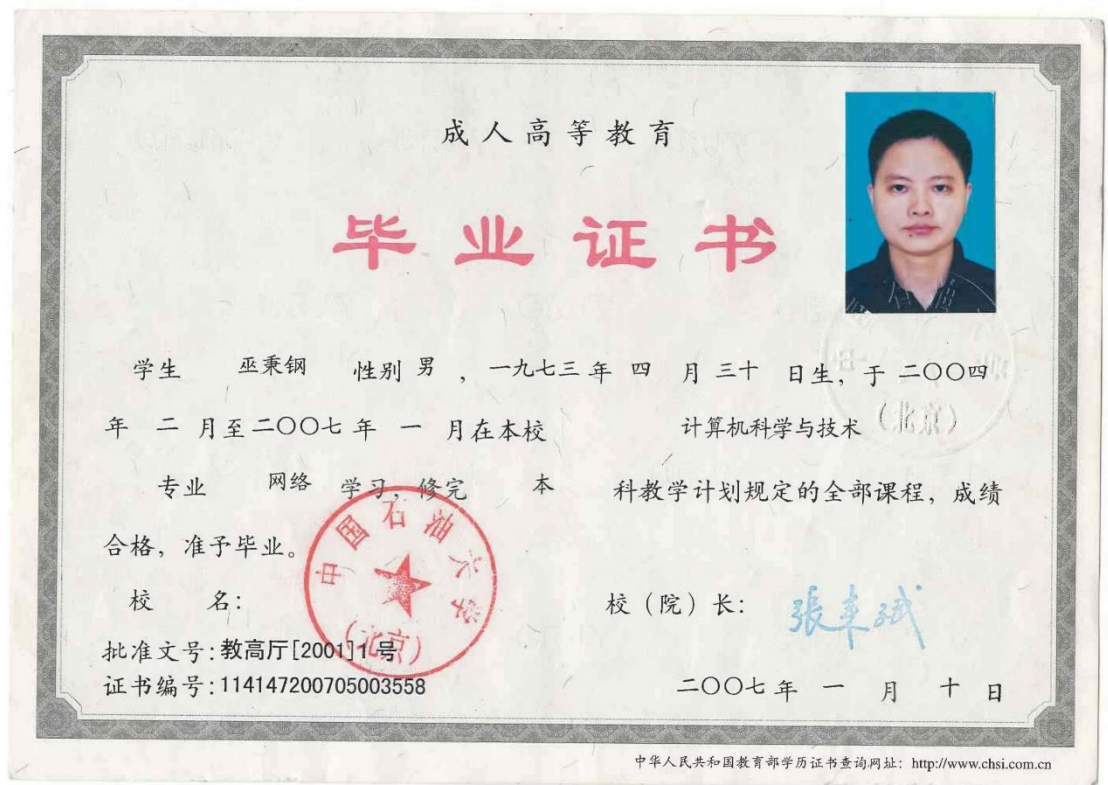 成人高等教育
毕业证书
学生 巫秉钢 性别 男 ，一九七三 年 四 月 三十 日生，于 二〇〇四
年 二 月至 二〇〇七 年 一 月在本校 计算机科学与技术
专业 网络 学习，修完 本 科教学计划规定的全部课程，成绩
合格，准予毕业。
中国石油大学
（北京）
校 名： 校（院）长： 張来斌
批准文号：教高厅[2001]1号
证书编号：114147200705003558 二〇〇七 年 一 月 十 日
中华人民共和国教育部学历证书查询网址：http://www.chsi.com.cn